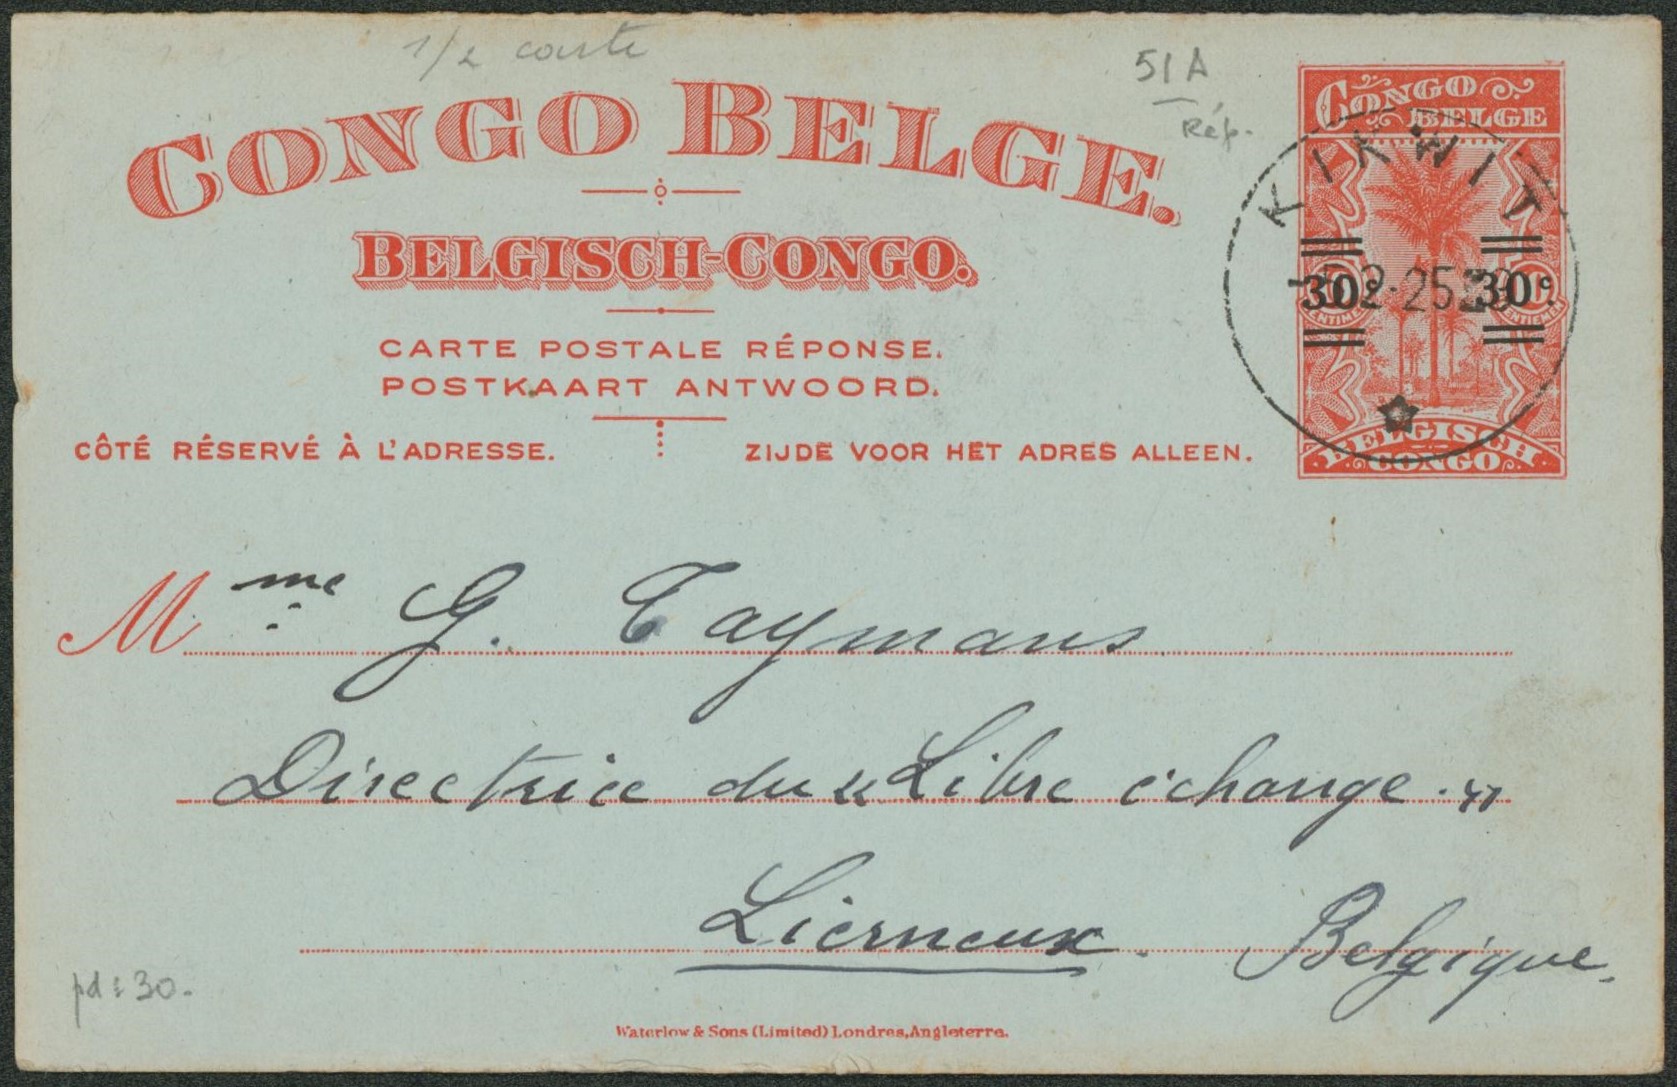 1/2 carte
51A
Rép.
CONGO BELGE.
BELGISCH-CONGO.
CARTE POSTALE RÉPONSE.
POSTKAART ANTWOORD.
CÔTÉ RÉSERVÉ À L'ADRESSE. ZIJDE VOOR HET ADRES ALLEEN.
CONGO BELGE
KIKWIT
30c. 30c.
2-25
BELGISCH CONGO
Mme G. Taymans
Directrice du "Libre échange."
Lierneux. Belgique.
pd: 30.
Waterlow & Sons (Limited) Londres, Angleterre.